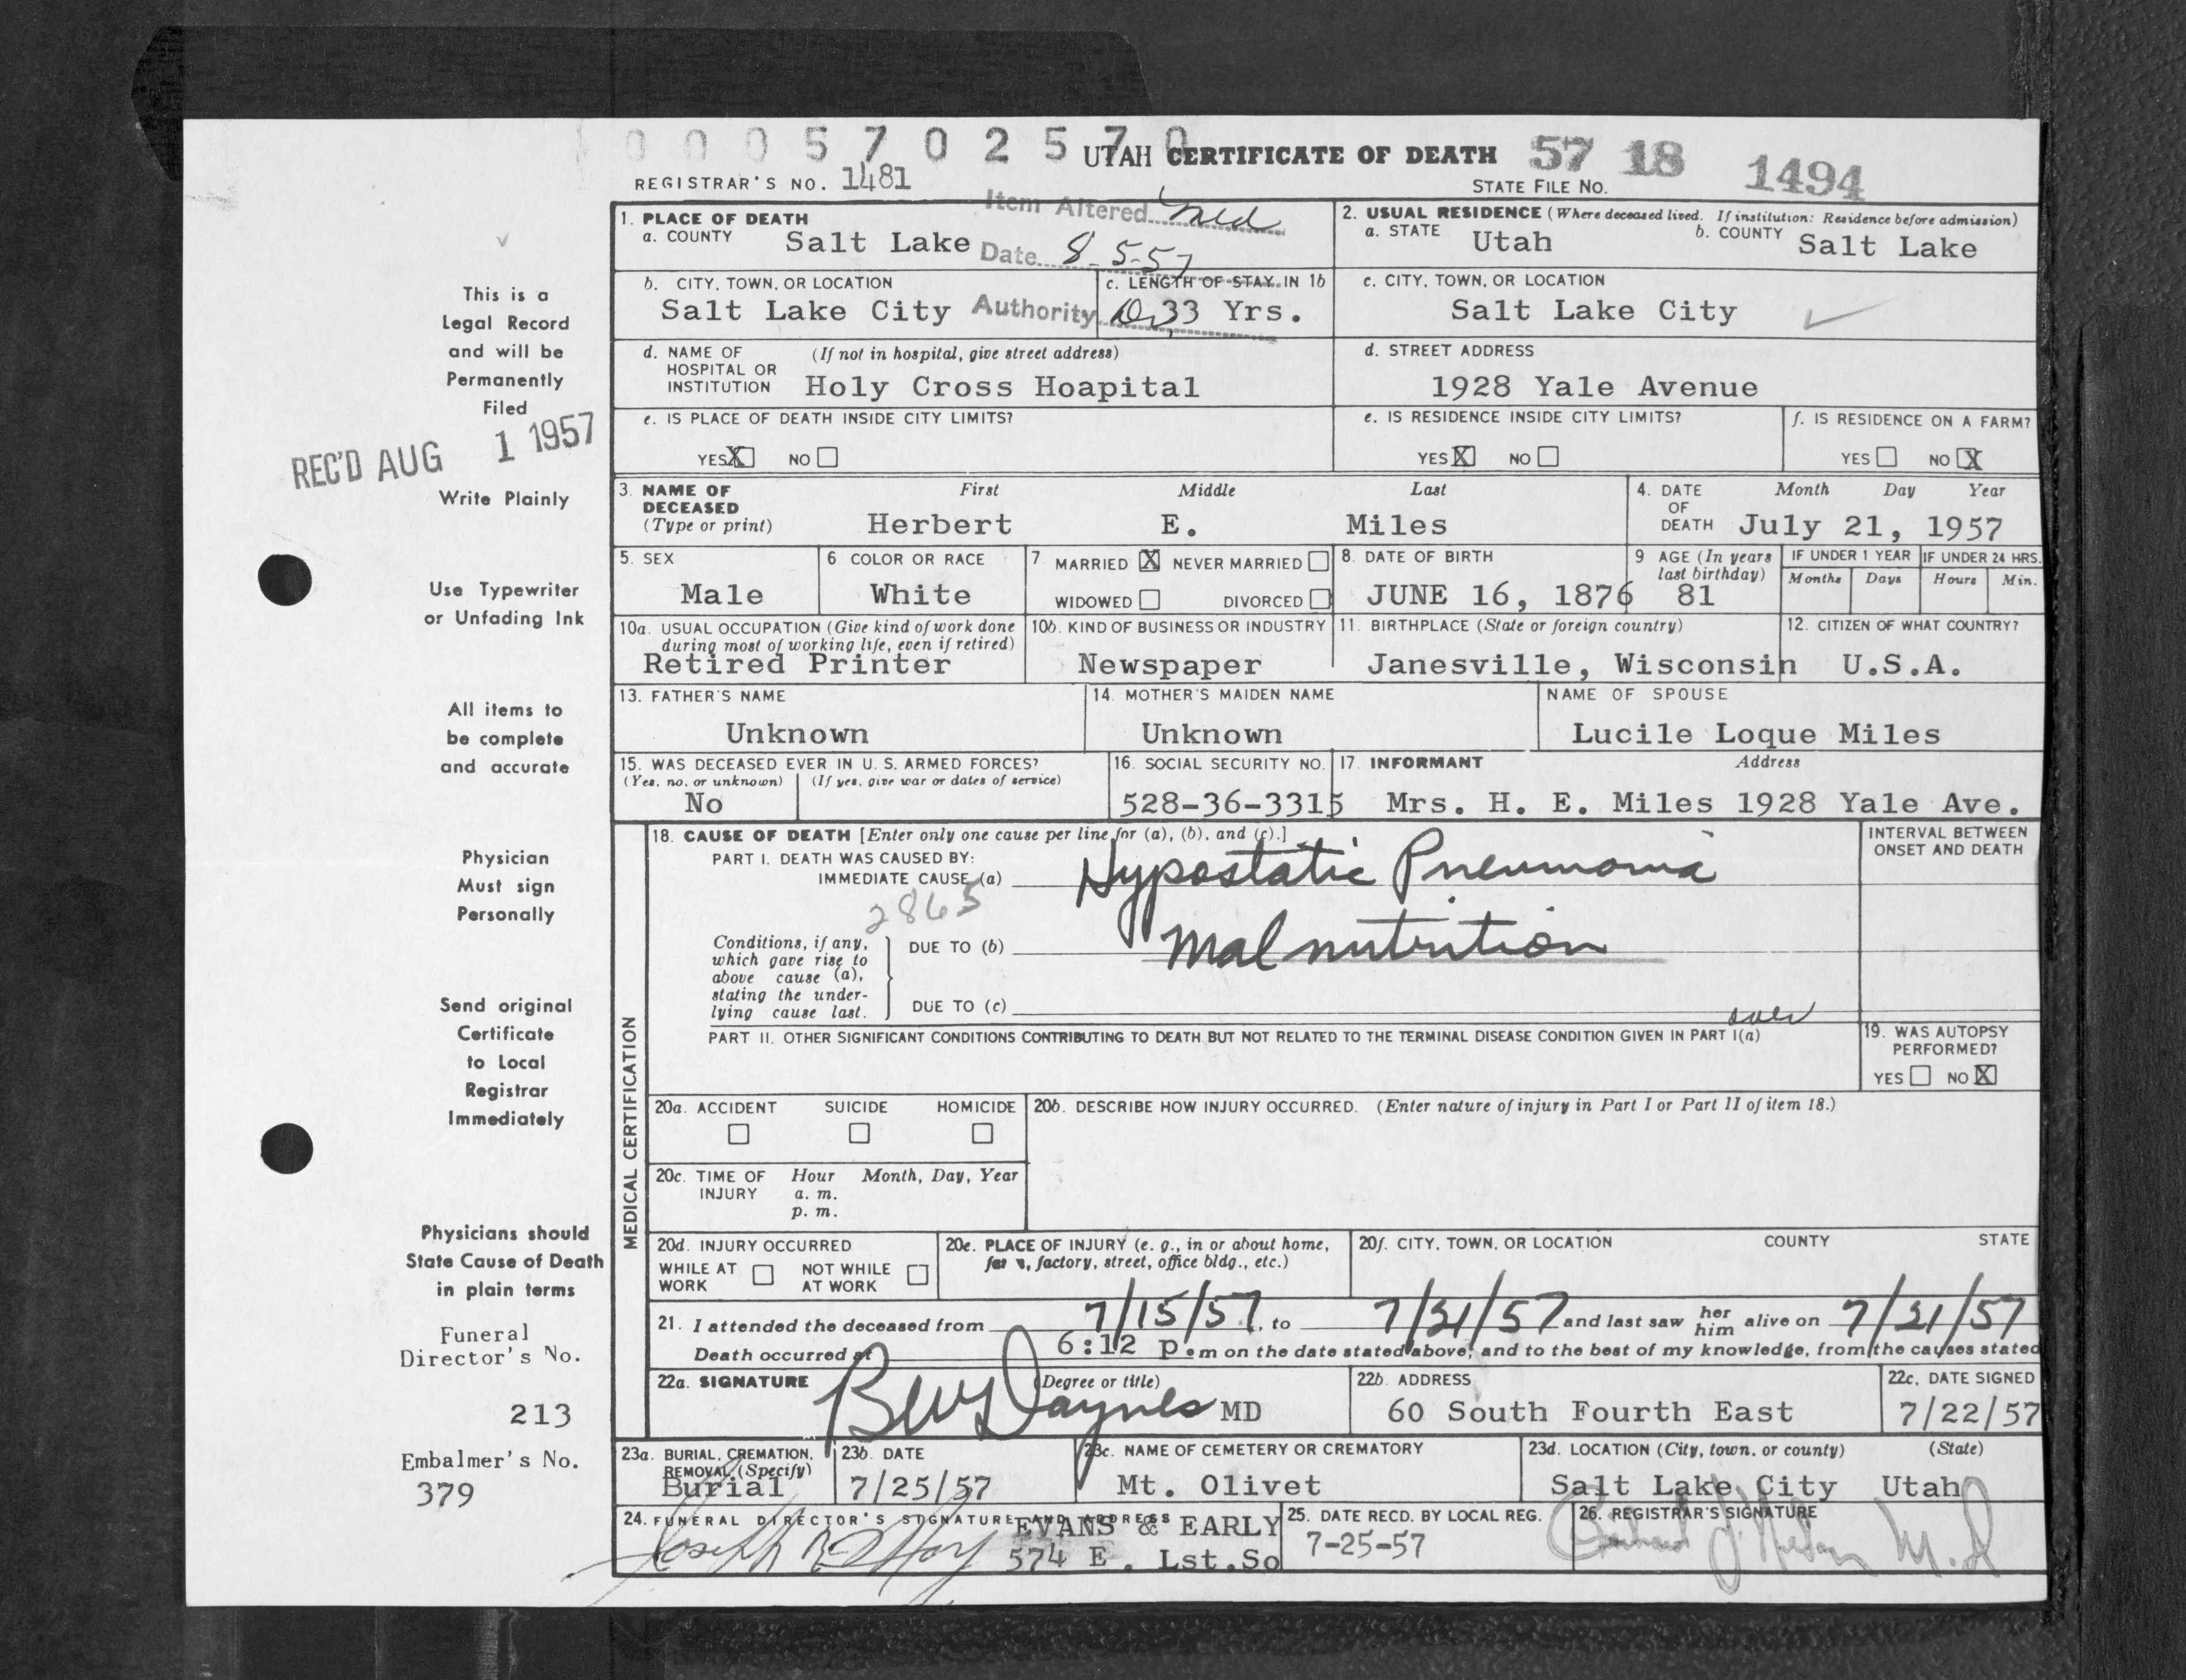 0005702570
UTAH CERTIFICATE OF DEATH 57 18 1494
REGISTRAR'S NO. 1481
STATE FILE NO.
Item Altered med
1. PLACE OF DEATH
a. COUNTY Salt Lake
Date 8-5-57
2. USUAL RESIDENCE (Where deceased lived. If institution: Residence before admission)
a. STATE Utah
b. COUNTY Salt Lake
b. CITY, TOWN, OR LOCATION
Salt Lake City
Authority
c. LENGTH OF STAY IN 1b
33 Yrs.
c. CITY, TOWN, OR LOCATION
Salt Lake City
d. NAME OF HOSPITAL OR INSTITUTION (If not in hospital, give street address)
Holy Cross Hoapital
d. STREET ADDRESS
1928 Yale Avenue
e. IS PLACE OF DEATH INSIDE CITY LIMITS?
YES X NO
e. IS RESIDENCE INSIDE CITY LIMITS?
YES X NO
f. IS RESIDENCE ON A FARM?
YES NO X
3. NAME OF DECEASED (Type or print)
First Middle Last
Herbert E. Miles
4. DATE OF DEATH Month Day Year
July 21, 1957
5. SEX
Male
6 COLOR OR RACE
White
7 MARRIED X NEVER MARRIED
WIDOWED DIVORCED
8. DATE OF BIRTH
JUNE 16, 1876
9 AGE (In years last birthday)
81
IF UNDER 1 YEAR IF UNDER 24 HRS.
Months Days Hours Min.
10a. USUAL OCCUPATION (Give kind of work done during most of working life, even if retired)
Retired Printer
10b. KIND OF BUSINESS OR INDUSTRY
Newspaper
11. BIRTHPLACE (State or foreign country)
Janesville, Wisconsin
12. CITIZEN OF WHAT COUNTRY?
U.S.A.
13. FATHER'S NAME
Unknown
14. MOTHER'S MAIDEN NAME
Unknown
NAME OF SPOUSE
Lucile Loque Miles
15. WAS DECEASED EVER IN U. S. ARMED FORCES?
(Yes, no, or unknown) (If yes, give war or dates of service)
No
16. SOCIAL SECURITY NO.
528-36-3315
17. INFORMANT Address
Mrs. H. E. Miles 1928 Yale Ave.
MEDICAL CERTIFICATION
18. CAUSE OF DEATH [Enter only one cause per line for (a), (b), and (c).]
PART I. DEATH WAS CAUSED BY:
IMMEDIATE CAUSE (a) Hypostatic Pneumonia
2865
Conditions, if any, which gave rise to above cause (a), stating the underlying cause last.
DUE TO (b) Malnutrition
DUE TO (c)
over
INTERVAL BETWEEN ONSET AND DEATH
PART II. OTHER SIGNIFICANT CONDITIONS CONTRIBUTING TO DEATH BUT NOT RELATED TO THE TERMINAL DISEASE CONDITION GIVEN IN PART I(a)
19. WAS AUTOPSY PERFORMED?
YES NO X
20a. ACCIDENT SUICIDE HOMICIDE
20b. DESCRIBE HOW INJURY OCCURRED. (Enter nature of injury in Part I or Part II of item 18.)
20c. TIME OF INJURY Hour Month, Day, Year
a. m.
p. m.
20d. INJURY OCCURRED
WHILE AT WORK NOT WHILE AT WORK
20e. PLACE OF INJURY (e. g., in or about home, factory, street, office bldg., etc.)
20f. CITY, TOWN, OR LOCATION COUNTY STATE
21. I attended the deceased from 7/15/57, to 7/21/57 and last saw her him alive on 7/21/57
Death occurred at 6:12 p.m on the date stated above, and to the best of my knowledge, from the causes stated
22a. SIGNATURE (Degree or title)
Daynes MD
22b. ADDRESS
60 South Fourth East
22c. DATE SIGNED
7/22/57
23a. BURIAL, CREMATION, REMOVAL (Specify)
Burial
23b. DATE
7/25/57
23c. NAME OF CEMETERY OR CREMATORY
Mt. Olivet
23d. LOCATION (City, town, or county) (State)
Salt Lake City Utah
24. FUNERAL DIRECTOR'S SIGNATURE AND ADDRESS
EVANS & EARLY
574 E. Lst.So
25. DATE RECD. BY LOCAL REG.
7-25-57
26. REGISTRAR'S SIGNATURE
M.D
This is a
Legal Record
and will be
Permanently
Filed
REC'D AUG 1 1957
Write Plainly
Use Typewriter
or Unfading Ink
All items to
be complete
and accurate
Physician
Must sign
Personally
Send original
Certificate
to Local
Registrar
Immediately
Physicians should
State Cause of Death
in plain terms
Funeral
Director's No.
213
Embalmer's No.
379